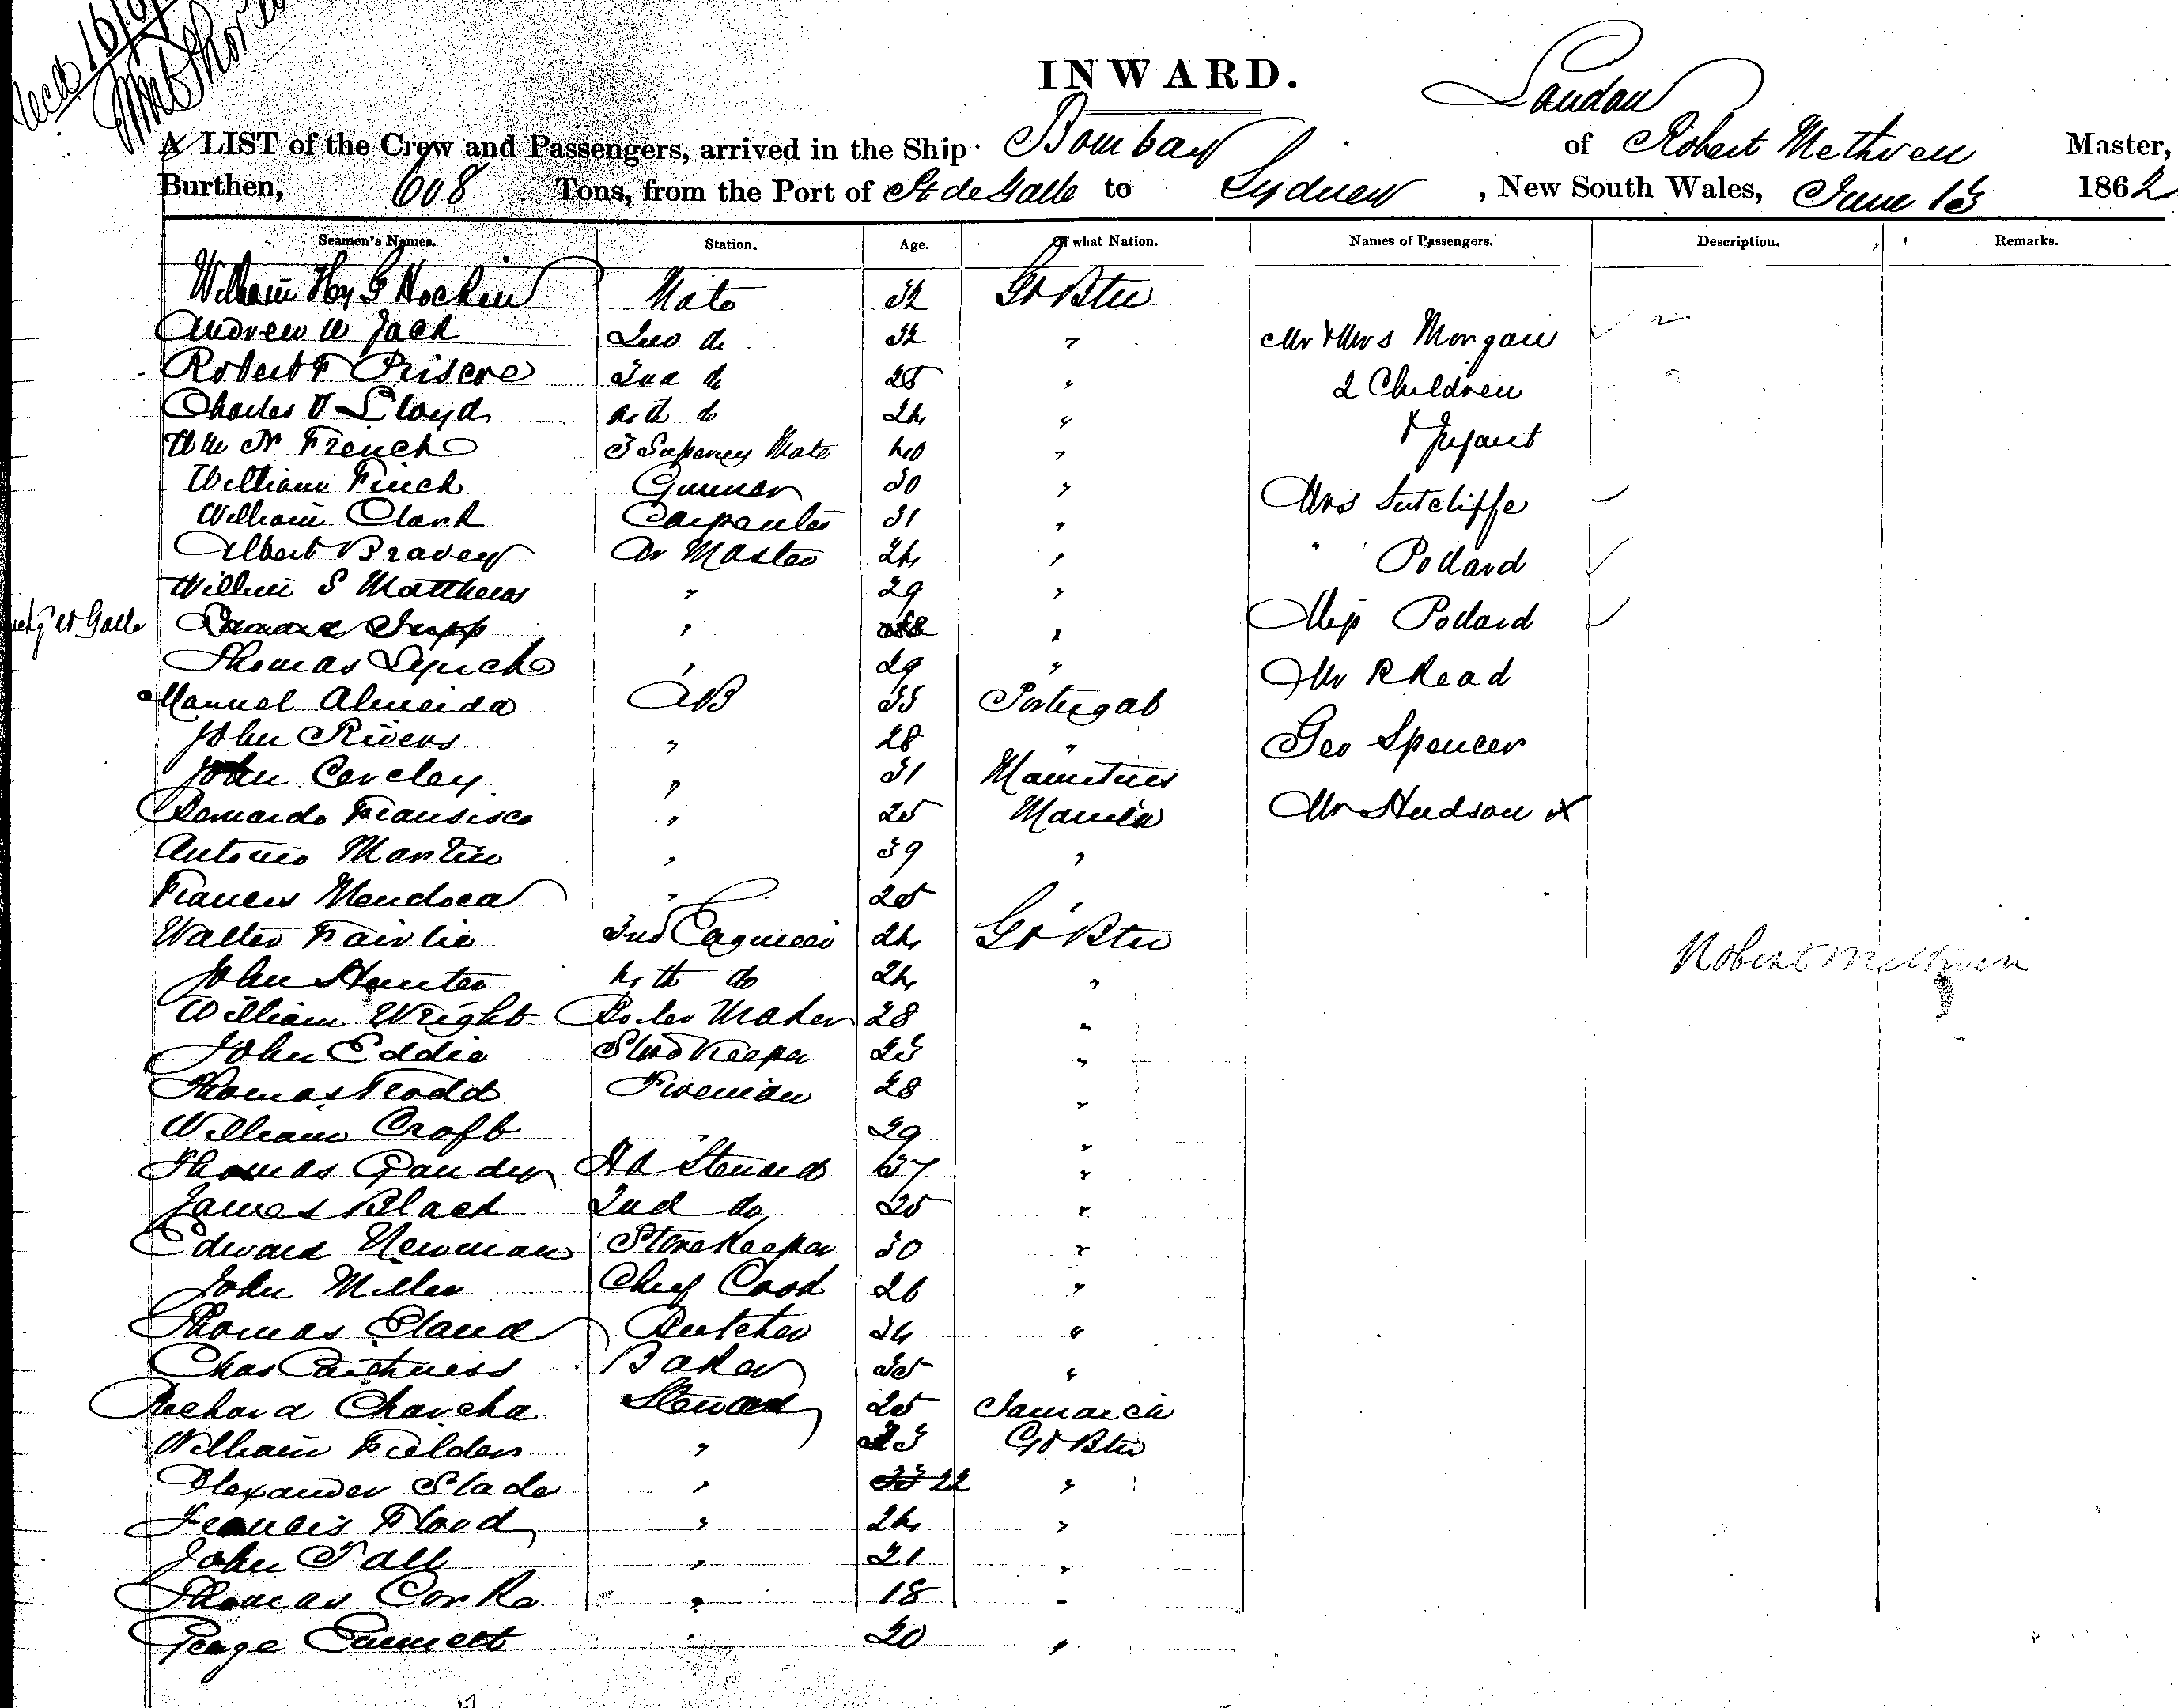 INWARD.
London
A LIST of the Crew and Passengers, arrived in the Ship Bombay of Robert Methven Master,
Burthen, 608 Tons, from the Port of Pt de Galle to Sydney, New South Wales, June 13 1862
Seamen's Names. Station. Age. Of what Nation. Names of Passengers. Description. Remarks.
William Hy G Hockin Mate 32 Gt Btn
Andrew W Jack 2nd do 32 " Mr & Mrs Morgan
Robert F Briscoe 3rd do 25 " 2 Children
Charles V Lloyd 4th do 24 " & Infant
Wm N French Mate 40 "
William Finch Gunner 30 " Mrs Sutcliffe
William Clark Carpenter 31 "
Albert Bravey Qr Master 24 " " Pollard
William S Matthews " 29 "
at Galle Tripp " " Miss Pollard
Thomas Lynch " 29 " Mr R Read
Manuel Almeida AB 33 Portugal
John Rivers " 28 " Geo Spencer
John Cereley " 31 Mauritius
Bernardo Fransisco " 25 Manila Mr Hudson x
Antonio Martin " 39 "
Francis Mendoca " 25 "
Walter Fairlie 3rd Engineer 24 Gt Btn
Robert Methven
John Hunter 4th do 24 "
William Wright Boiler Maker 28 "
John Eddie Store Keeper 23 "
Thomas Trodd Fireman 28 "
William Croft " 29 "
Thomas Gander Hd Steward 37 "
James Black 2nd do 25 "
Edward Newman Storekeeper 30 "
John Miller Chief Cook 26 "
Thomas Eland Butcher 34 "
Chas Caithness Baker 35 "
Richard Charcha Steward 25 Jamaica
William Fielden " 23 Gt Btn
Alexander Slade " 33 22 "
Francis Flood " 24 "
John Tall " 21 "
Thomas Corke " 18 "
George Emmett " 20 "